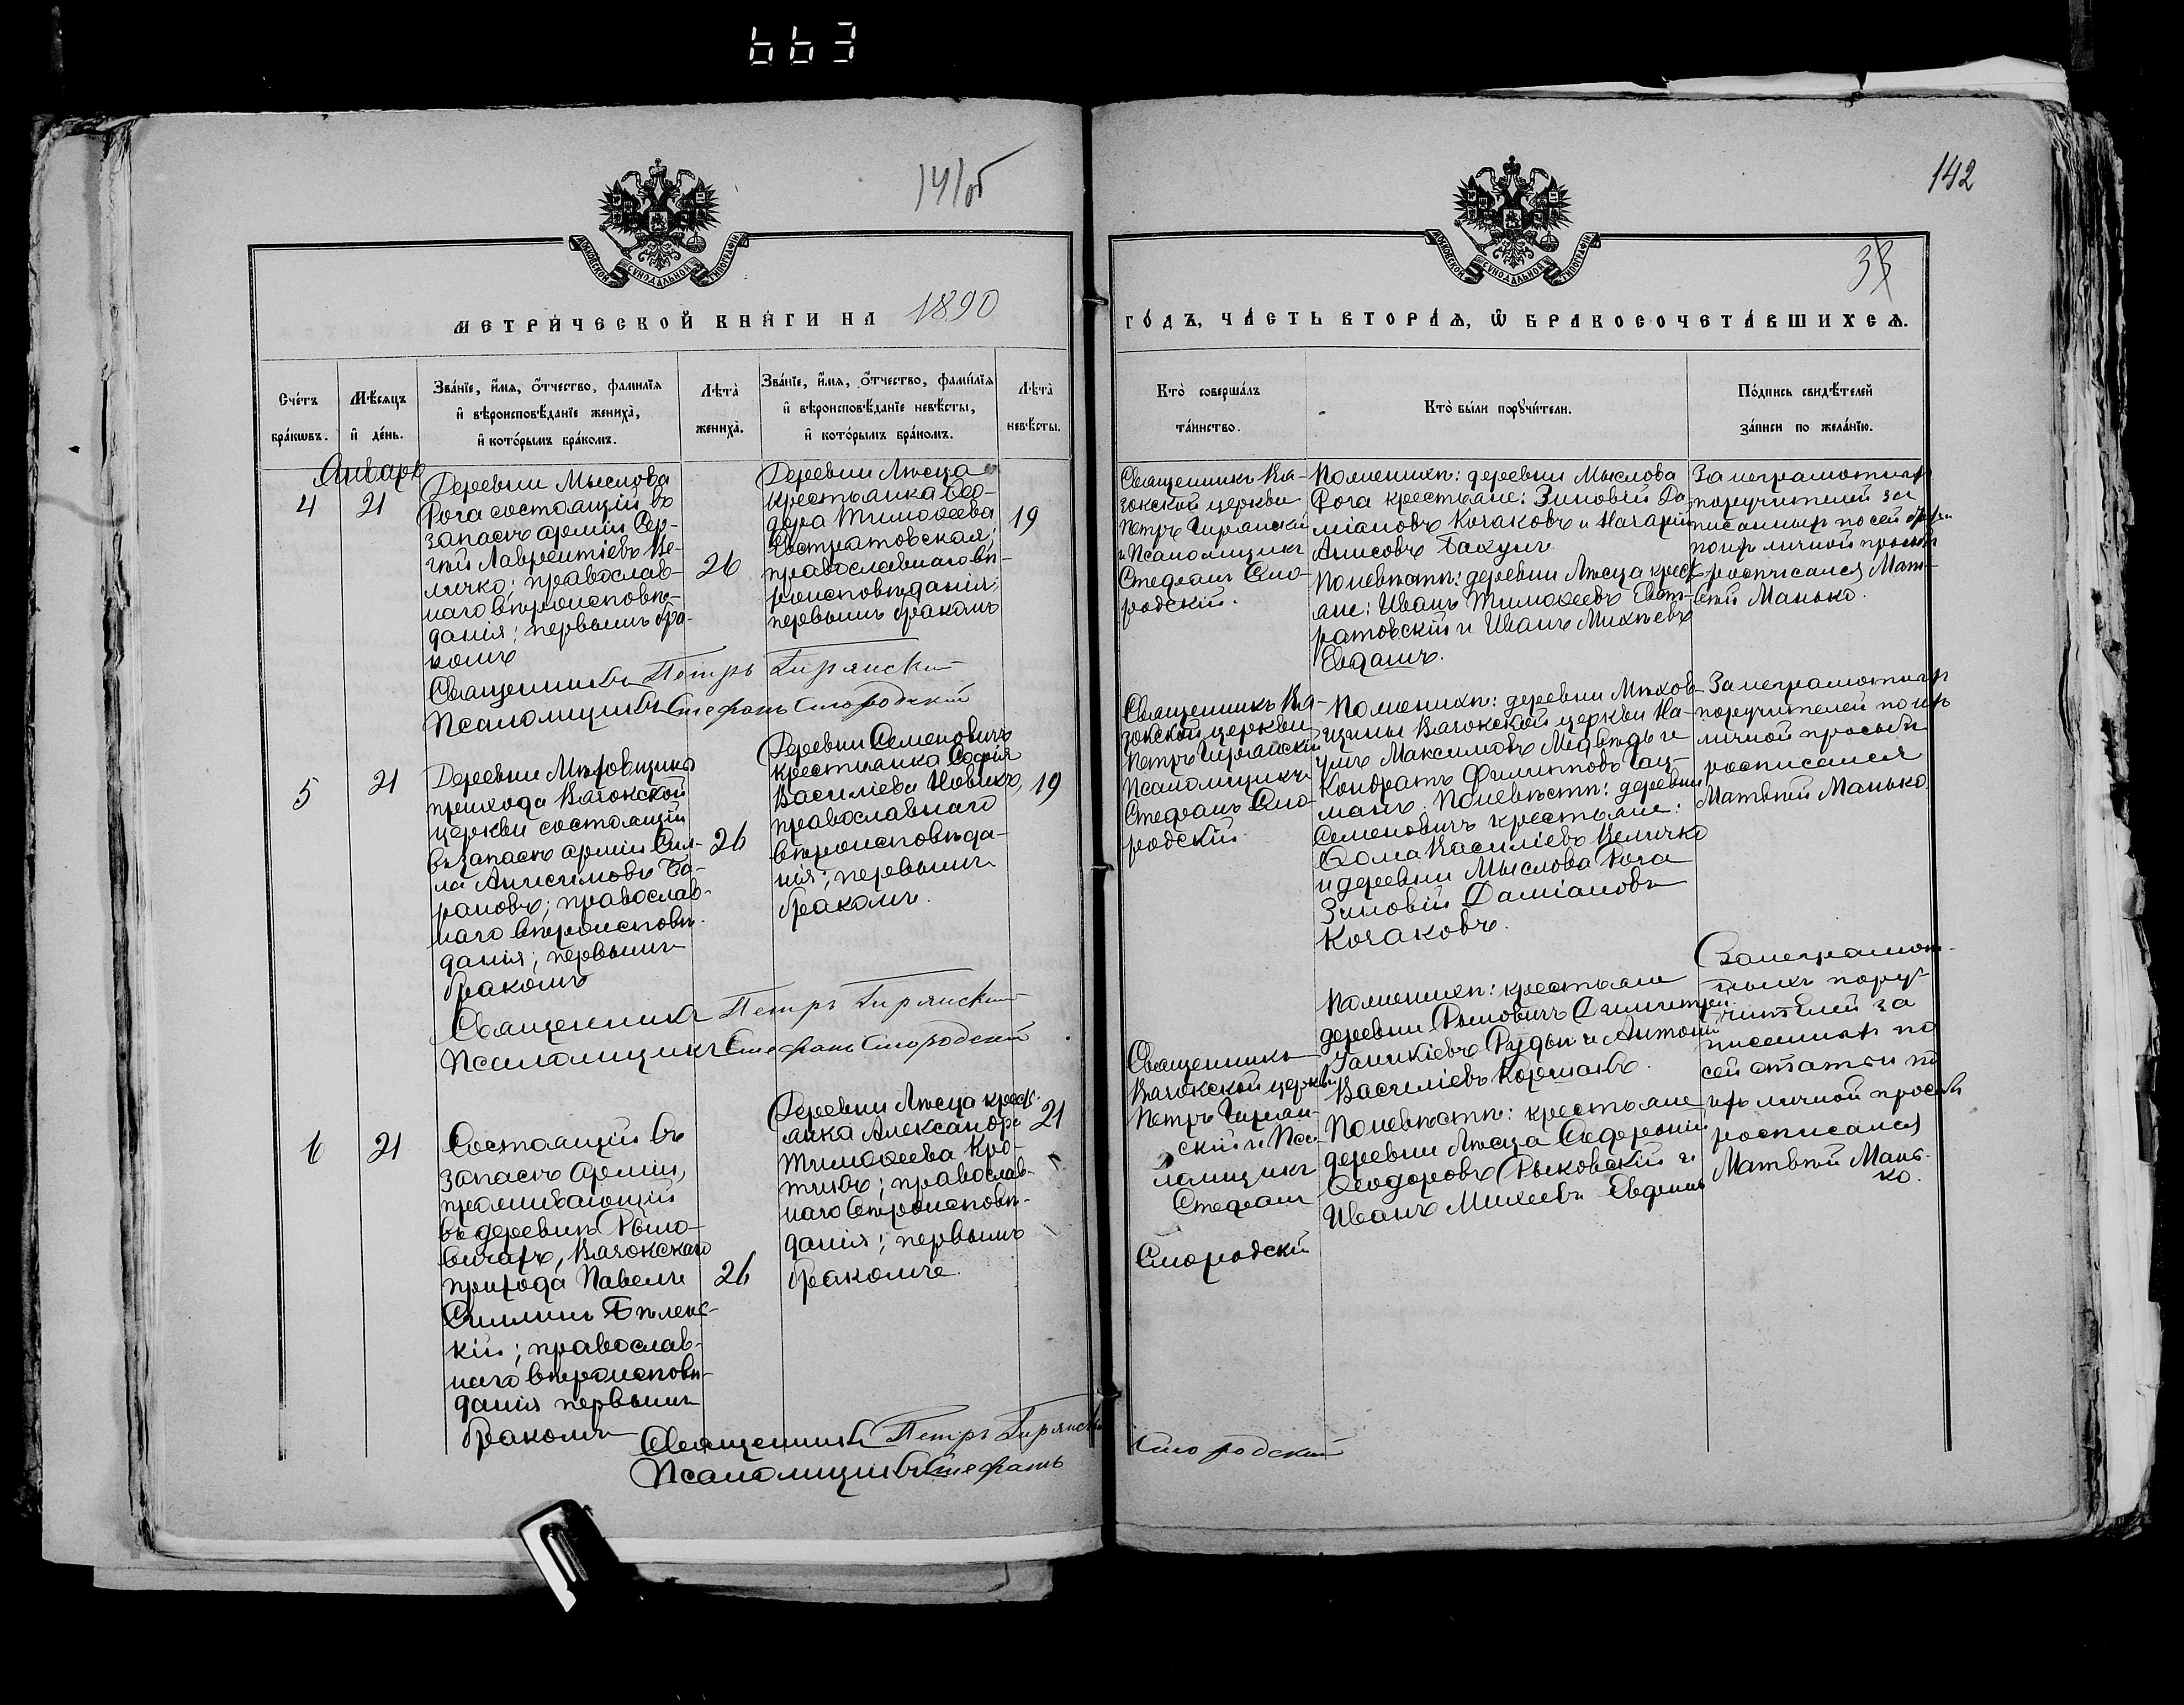 663
141об
142
33
МОСКОВСКОЙ СѴНОДАЛЬНОЙ ТИПОГРАФІИ
МОСКОВСКОЙ СѴНОДАЛЬНОЙ ТИПОГРАФІИ
МЕТРИ́ЧЕСКОЙ КНИ́ГИ НА 1890
ГО́ДЪ, ЧА́СТЬ ВТОРА́Ѧ, Ѽ БРАКОСОЧЕТА́ВШИХСѦ.
Сче́тъ
бра́кѡвъ.
Мѣ́сѧцъ
и҆ де́нь.
Зва́нїе, и҆́мѧ, ѻ҆́тчество, фами́лїѧ
и҆ вѣроисповѣ́данїе жениха̀,
и҆ кото́рымъ бра́комъ.
Лѣ́та̀
жениха̀.
Зва́нїе, и҆́мѧ, ѻ҆́тчество, фами́лїѧ
и҆ вѣроисповѣ́данїе невѣ́сты,
и҆ кото́рымъ бра́комъ.
Лѣ́та̀
невѣ́сты.
Кто̀ соверша́лъ
та́инство.
Кто̀ бы́ли порꙋчи́тели.
По́дпись свидѣ́телей
за́писи по жела́нїю.
Январь
4
21
Деревни Мыслова
Рога состоящій въ
запасѣ арміи Сер-
гѣй Лаврентіевъ Ве-
личко; православ-
наго вѣроисповѣ-
данія; первымъ бра-
комъ
26
Деревни Лѣсца
крестьянка Ѳео-
дора Тимоѳеева
Евстратовская;
православнаго вѣ-
роисповѣданія;
первымъ бракомъ
19
Священникъ Ва-
зокской церкви
Петръ Гирянскій
и Псаломщикъ
Стефанъ Смо-
родскій.
По женихѣ: деревни Мыслова
Рога крестьяне: Зиновій Да-
міановъ Кочаковъ и Назарій
Анисовъ Бахунъ
По невѣстѣ: деревни Лѣсца крест-
яне: Иванъ Тимоѳеевъ Евст-
ратовскій и Иванъ Михѣевъ
Евдашъ.
За неграмотныхъ
поручителей за
писанныхъ по сей
по ихъ личной просьбѣ
росписался Мат-
вѣй Манько.
Священникъ Петръ Гирянскій
Псаломщикъ Стефанъ Смородскій
5
21
Деревни Мѣховщина
прихода Вазокской
церкви состоящій
въ запасѣ арміи Сил-
ла Анисимовъ Ба-
рановъ; православ-
наго вѣроисповѣ-
данія; первымъ
бракомъ
26
Деревни Семеновичъ
крестьянка Софія
Василіева Новикъ,
православнаго
вѣроисповѣда-
нія; первымъ
бракомъ.
19
Священникъ Ва-
зокской церкви
Петръ Гирянскій
Псаломщикъ
Стефанъ Смо-
родскій
По женихѣ: деревни Мѣхов-
щины Вазокской церкви На-
умъ Максимовъ Медвѣдь и
Кондратъ Филиповъ Гац-
манъ. По невѣстѣ: деревни
Семеновичъ крестьяне:
Ѳома Василіевъ Величко
и деревни Мыслова Рога
Зиновій Даміановъ
Кочаковъ.
За неграмотныхъ
поручителей по ихъ
личной просьбѣ
росписался
Матвѣй Манько
Священникъ Петръ Гирянскій
Псаломщикъ Стефанъ Смородскій
6
21
Состоящій въ
запасѣ арміи,
проживающій
въ деревнѣ Рымо-
вичахъ, Вазокскаго
прихода Павелъ
Симминъ Бѣленс-
кій; православ-
наго вѣроисповѣ-
данія первымъ
бракомъ
26
Деревни Лѣсца крест-
янка Александра
Тимоѳеева Кро-
тивъ; православ-
наго вѣроисповѣ-
данія; первымъ
бракомъ.
21
Священникъ
Вазокской церкви
Петръ Гирян-
скій и Пса-
ломщикъ
Стефанъ
Смородскій
По женихѣ: крестьяне
деревни Рымовичъ Димитрій
Іаникіевъ Рудый и Антоній
Василіевъ Коршакъ.
По невѣстѣ: крестьяне
деревни Лѣсца Софроній
Ѳеодоровъ Рыковскій и
Иванъ Михеевъ Евдашъ
За неграмот-
ныхъ пору-
чителей за
писанныхъ по
сей статьи по
ихъ личной просьбѣ
росписался
Матвѣй Мань-
ко.
Священникъ Петръ Гирянскій
Псаломщикъ Стефанъ Смородскій